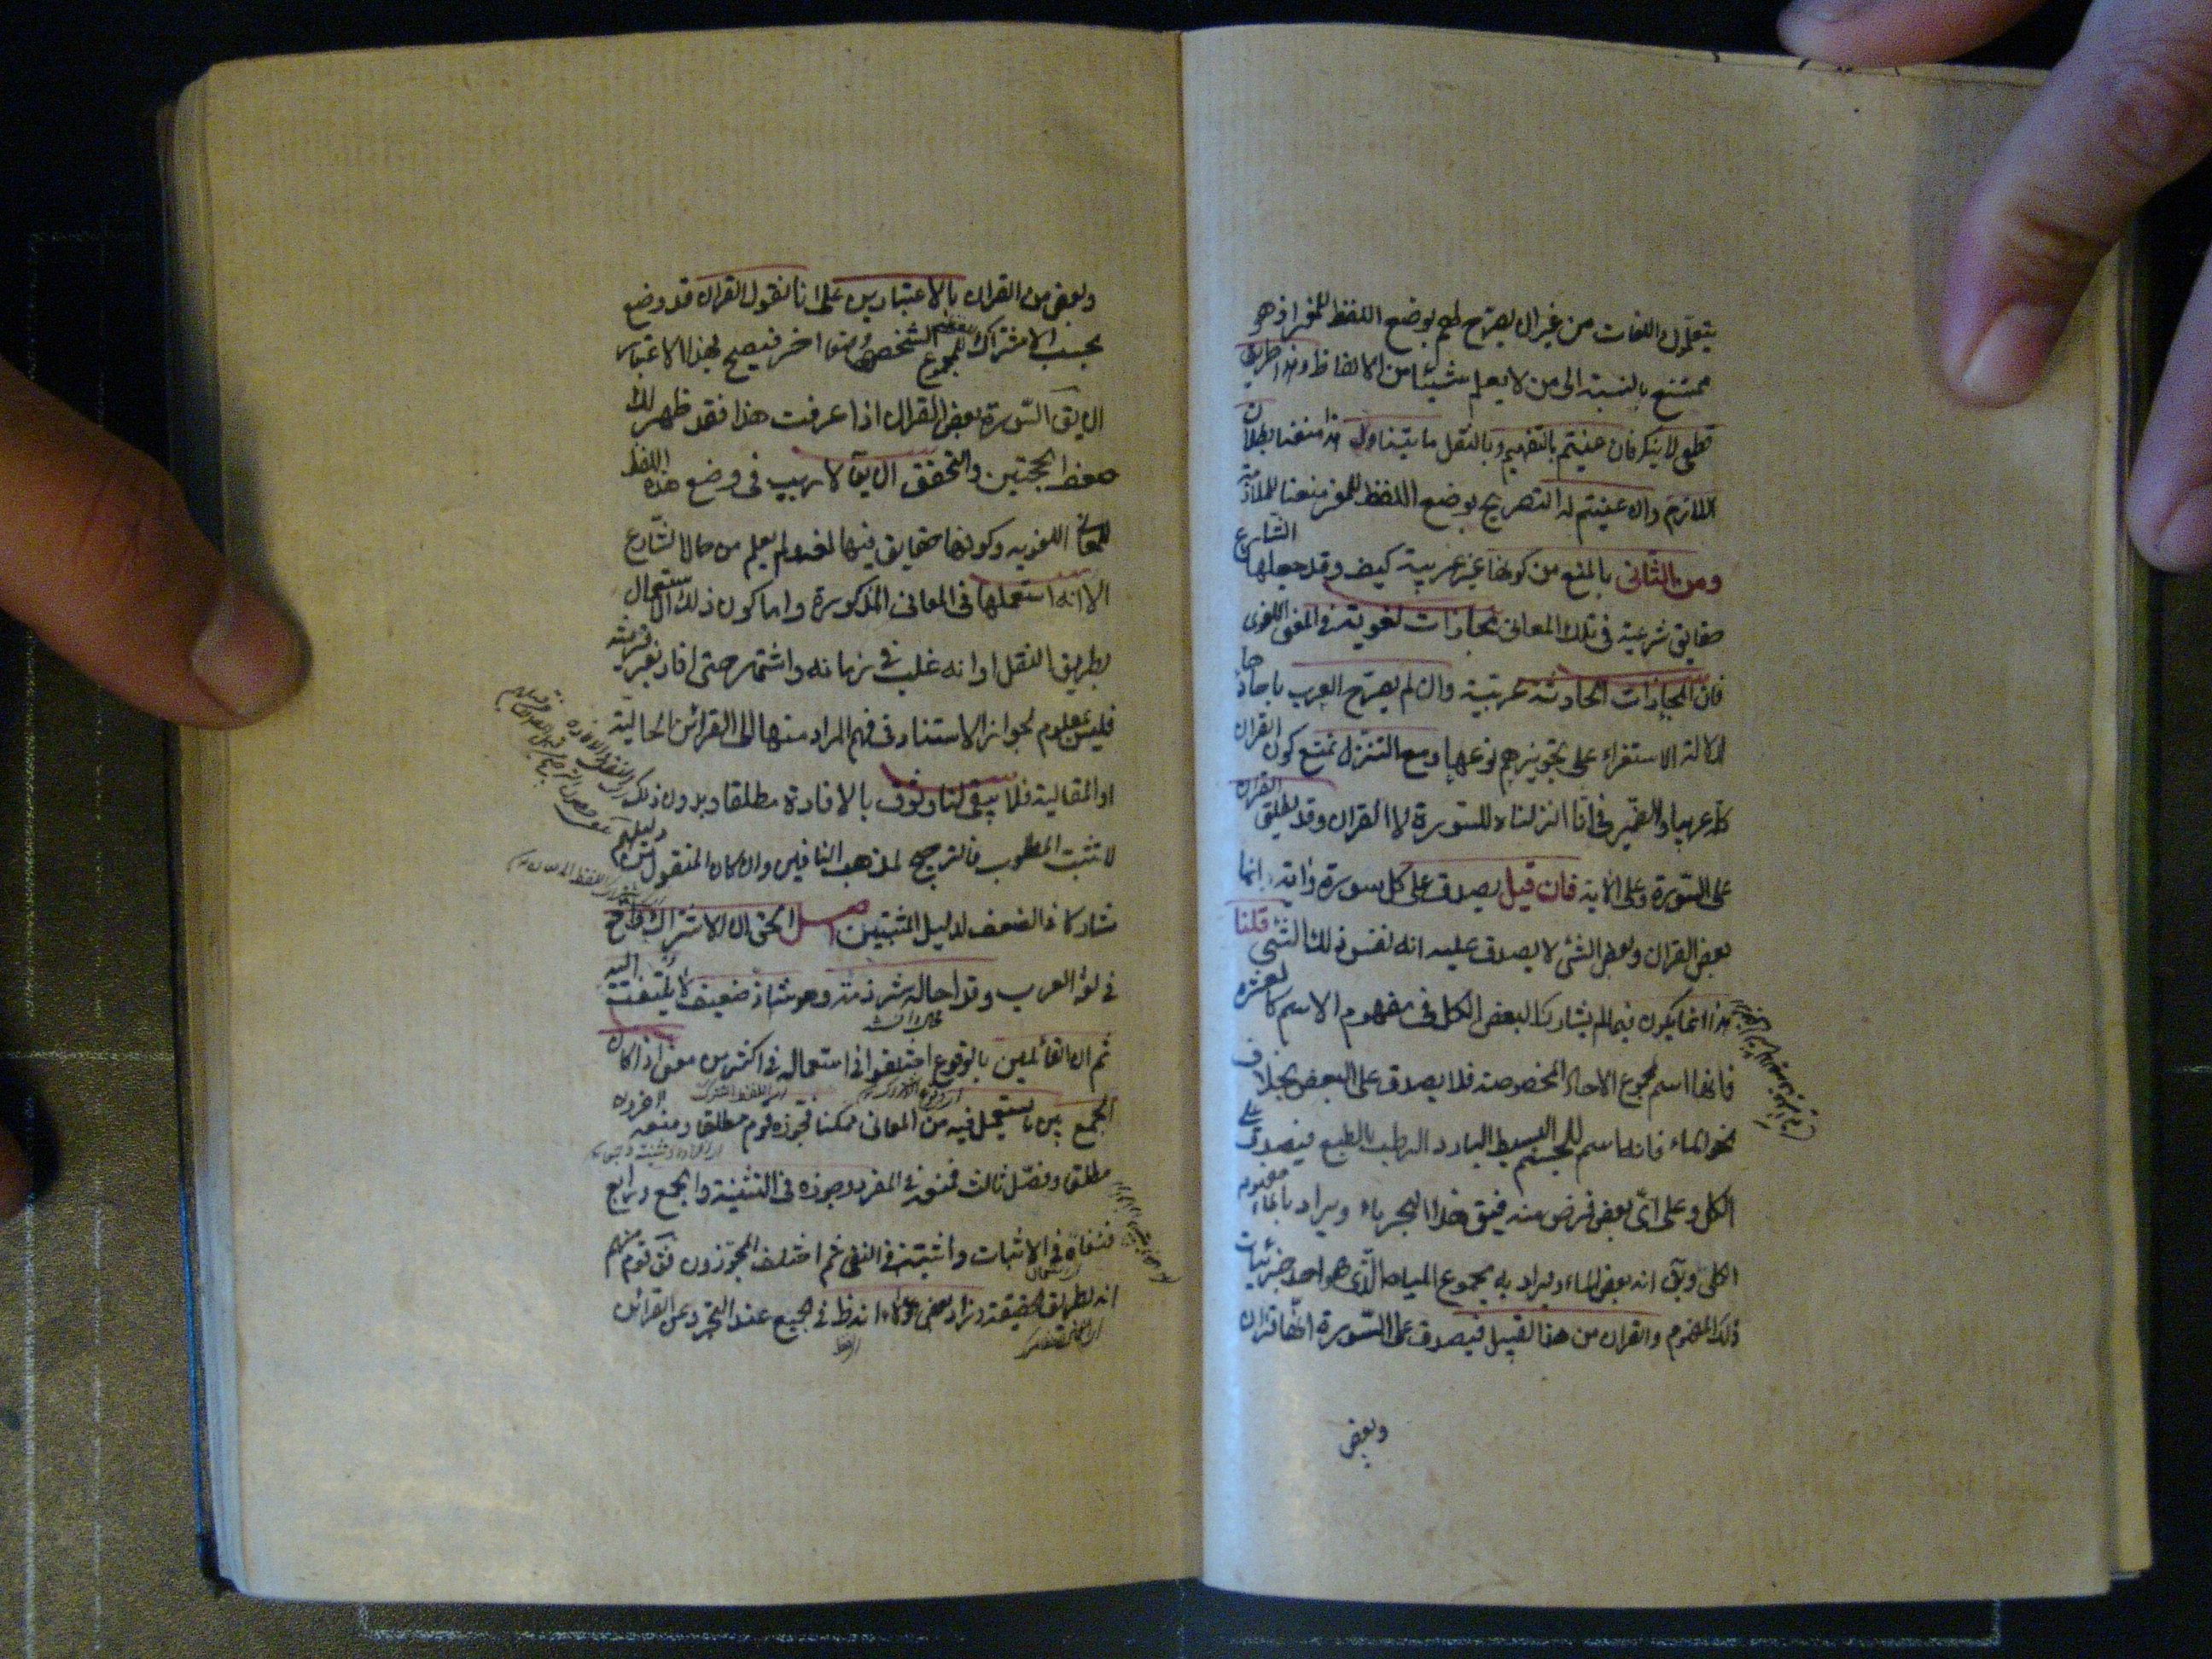 يتعلمون اللغات من غير ان يصرح لهم بوضع اللفظ للمعنى اذ هو
ممتنع بالنسبة الى من لا يعلم شيئا من الالفاظ وهذا طريق
قطعى لا ينكر فان عنيتم بالتفهيم وبالنقل ما يتناول هذا منعنا بطلان
اللازم وان عنيتم به التصريح بوضع اللفظ للمعنى منعنا الملازمة
ومن الثانى بالمنع من كونها غير عربية كيف وقد جعلها الشارع
حقايق شرعية فى تلك المعانى مجازات لغوية فى المعنى اللغوى
فان المجازات الحادثة عربية وان لم يصرح العرب باحادها
لدلالة الاستقراء على تجويزهم نوعها ومع التنزل نمنع كون القران
كله عربيا والضمير فى انا انزلناه للسورة لا القران وقد يطلق القران
على السورة وعلى الاية فان قيل يصدق على كل سورة واية انها
بعض القران وبعض الشئ لا يصدق عليه انه نفس ذلك الشئ قلنا
هذا انما يكون فيما لم يشارك البعض الكل فى مفهوم الاسم كالعشرة
فانها اسم لمجموع الاحاد المخصوصة فلا يصدق على البعض بخلاف
نحو الماء فانه اسم للجسم البسيط البارد الرطب بالطبع فيصدق على
الكل وعلى اى بعض فرض منه فيق هذا البحر ماء ويراد بالماء مفهومه
الكلى ويق انه بعض الماء ويراد به مجموع المياه الذى هو احد جزئيات
ذلك المفهوم والقران من هذا القبيل فيصدق على السورة انها قران
وبعض
وبعض من القران بالاعتبارين على انا نقول القران قد وضع
بحسب الاشتراك للمجموع الشخصى وضعا اخر فيصح بهذا الاعتبار
ان يق السورة بعض القران اذا عرفت هذا فقد ظهر لك
ضعف الحجتين والتحقيق ان يق لا ريب فى وضع هذه الالفاظ
للمعانى اللغوية وكونها حقايق فيها لغة ولم يعلم من حال الشارع
الا انه استعملها فى المعانى المذكورة واما كون ذلك الاستعمال
بطريق النقل او انه غلب فى زمانه واشتهر حتى افاد بغير قرينة
فليس بمعلوم لجواز الاستناد فى فهم المراد منها الى القرائن الحالية
او المقالية فلا يبقى لنا وثوق بالافادة مطلقا وبدون ذلك
لا تثبت المطلوب فالترجيح لمذهب النافين وان كان المنقول من دليلهم
مشاركا فى الضعف لدليل المثبتين اصل الحق ان الاشتراك واقع
فى لغة العرب وقد احاله شرذمة وهو شاذ ضعيف لا يلتفت اليه
ثم ان القائلين بالوقوع اختلفوا فى استعماله فى اكثر من معنى اذا كان
الجمع بين ما يستعمل فيه من المعانى ممكنا فجوزه قوم مطلقا ومنعه اخرون
مطلقا وفصل ثالث فمنعه فى المفرد وجوزه فى التثنية والجمع ورابع
فنفاه فى الاثبات واثبته فى النفى ثم اختلف المجوزون فق قوم منهم
انه بطريق الحقيقة وزاد بعض هؤلاء انه ظ فى الجميع عند التجرد عن القرائن